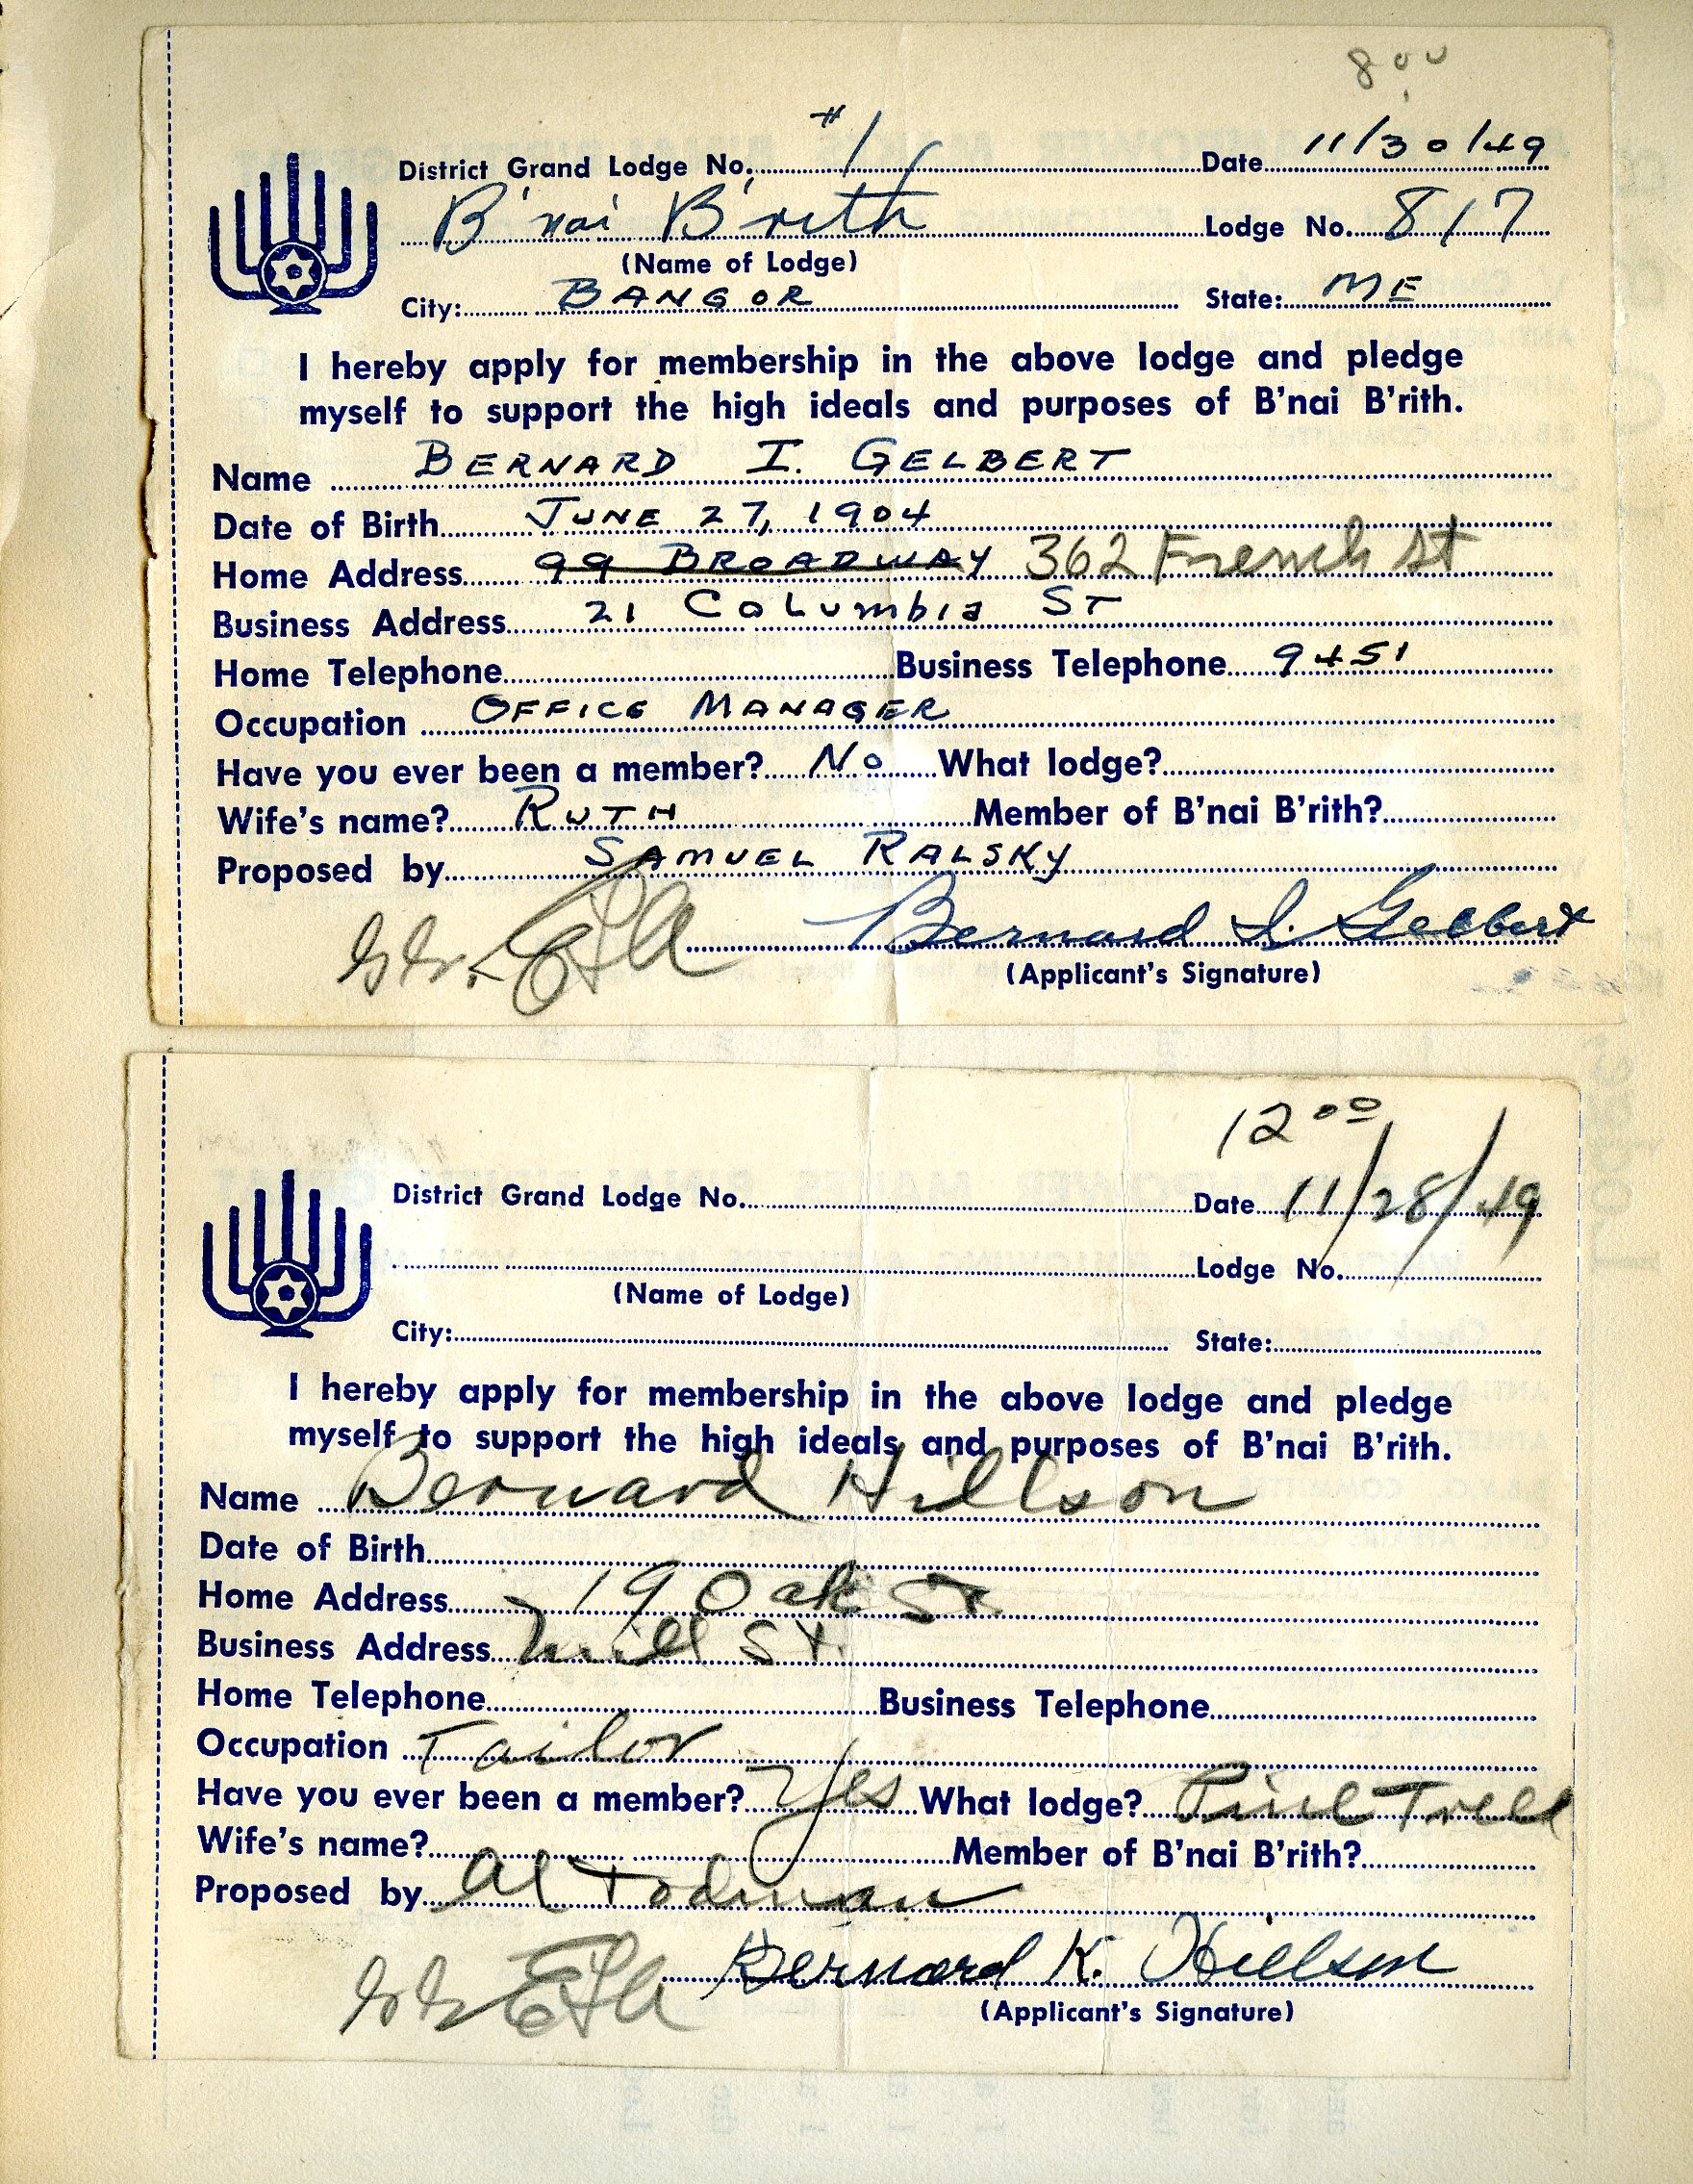 8 00
District Grand Lodge No. #1 Date 11/30/49
B'nai B'rith Lodge No. 817
(Name of Lodge)
City: BANGOR State: ME
I hereby apply for membership in the above lodge and pledge
myself to support the high ideals and purposes of B'nai B'rith.
Name BERNARD I. GELBERT
Date of Birth JUNE 27, 1904
Home Address 99 BROADWAY 362 French St
Business Address 21 Columbia ST
Home Telephone Business Telephone 9451
Occupation OFFICE MANAGER
Have you ever been a member? No What lodge?
Wife's name? RUTH Member of B'nai B'rith?
Proposed by SAMUEL RALSKY
Bernard I. Gelbert
(Applicant's Signature)
12 00
District Grand Lodge No. Date 11/28/49
Lodge No.
(Name of Lodge)
City: State:
I hereby apply for membership in the above lodge and pledge
myself to support the high ideals and purposes of B'nai B'rith.
Name Bernard Hillson
Date of Birth
Home Address 19 Oak St
Business Address Mill St.
Home Telephone Business Telephone
Occupation Tailor
Have you ever been a member? Yes What lodge? Pine Tree
Wife's name? Member of B'nai B'rith?
Proposed by Al Todman
Bernard K. Hillson
(Applicant's Signature)